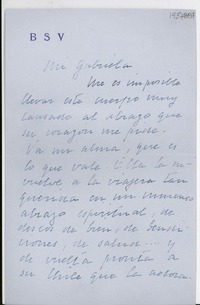 B S V
Mi Gabriela
Me es imposible
llevar este cuerpo muy
cansado al abrazo que
su corazón me puso.
Va mi alma, que es
lo que vale. Ella la en-
vuelve a la viajera tan
querida en un inmenso
abrazo espiritual, de
deseos de bien, de bendi-
ciones, de salud.... y
de vuelta pronta a
su Chile que la adora.